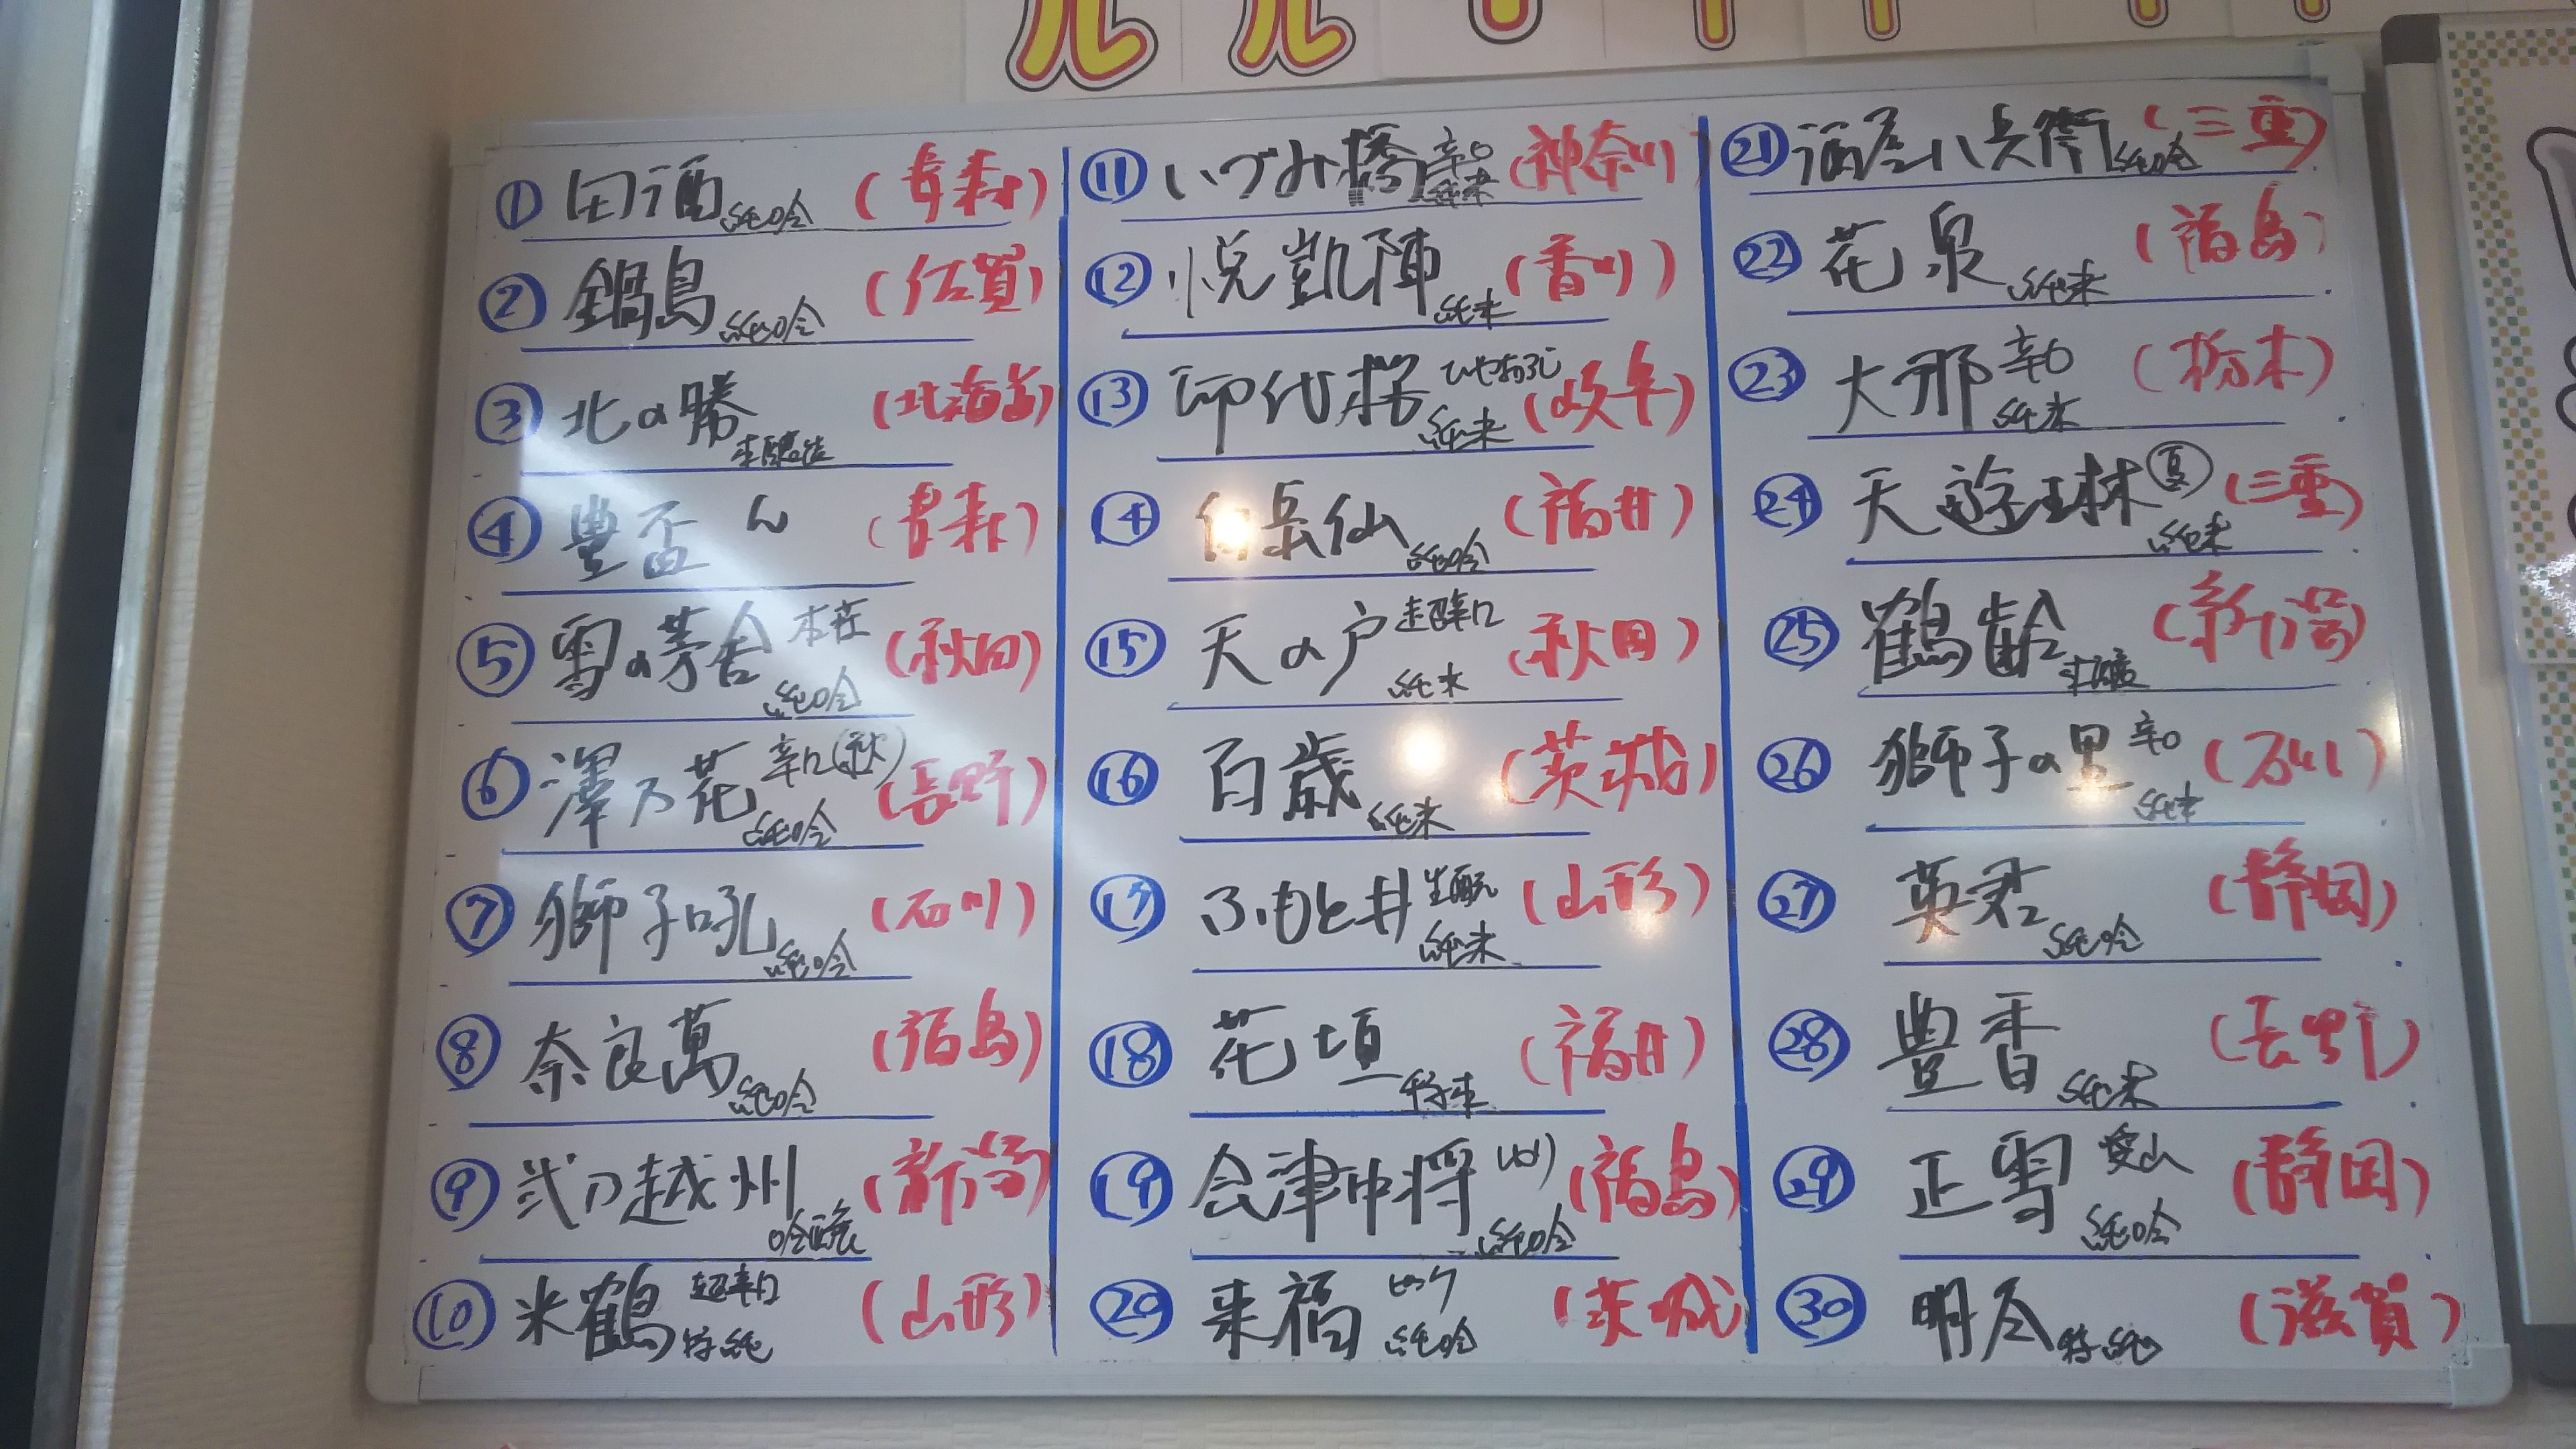 ① 田酒 純吟 (青森)
② 鍋島 純吟 (佐賀)
③ 北の勝 本醸造 (北海道)
④ 豊盃 ん (青森)
⑤ 雪の茅舎 本荘 純吟 (秋田)
⑥ 澤乃花 辛口(秋) 純吟 (長野)
⑦ 獅子吼 純吟 (石川)
⑧ 奈良萬 純吟 (福島)
⑨ 弐乃越州 吟醸 (新潟)
⑩ 米鶴 超辛口 特純 (山形)
⑪ いづみ橋 辛口 純米 (神奈川)
⑫ 悦凱陣 純米 (香川)
⑬ 御代桜 ひやおろし 純米 (岐阜)
⑭ 白岳仙 純吟 (福井)
⑮ 天の戸 超辛口 純米 (秋田)
⑯ 百歳 純米 (茨城)
⑰ ふもと井 生酛 純米 (山形)
⑱ 花垣 純米 (福井)
⑲ 会津中将 純吟 (福島)
⑳ 来福 純吟 (茨城)
㉑ 酒屋八兵衛 純吟 (三重)
㉒ 花泉 純米 (福島)
㉓ 大那 辛口 純米 (栃木)
㉔ 天遊琳 夏 純米 (三重)
㉕ 鶴齢 本醸 (新潟)
㉖ 獅子の里 辛口 純米 (石川)
㉗ 英君 純吟 (静岡)
㉘ 豊香 純米 (長野)
㉙ 正雪 愛山 純吟 (静岡)
㉚ 明尽 特純 (滋賀)